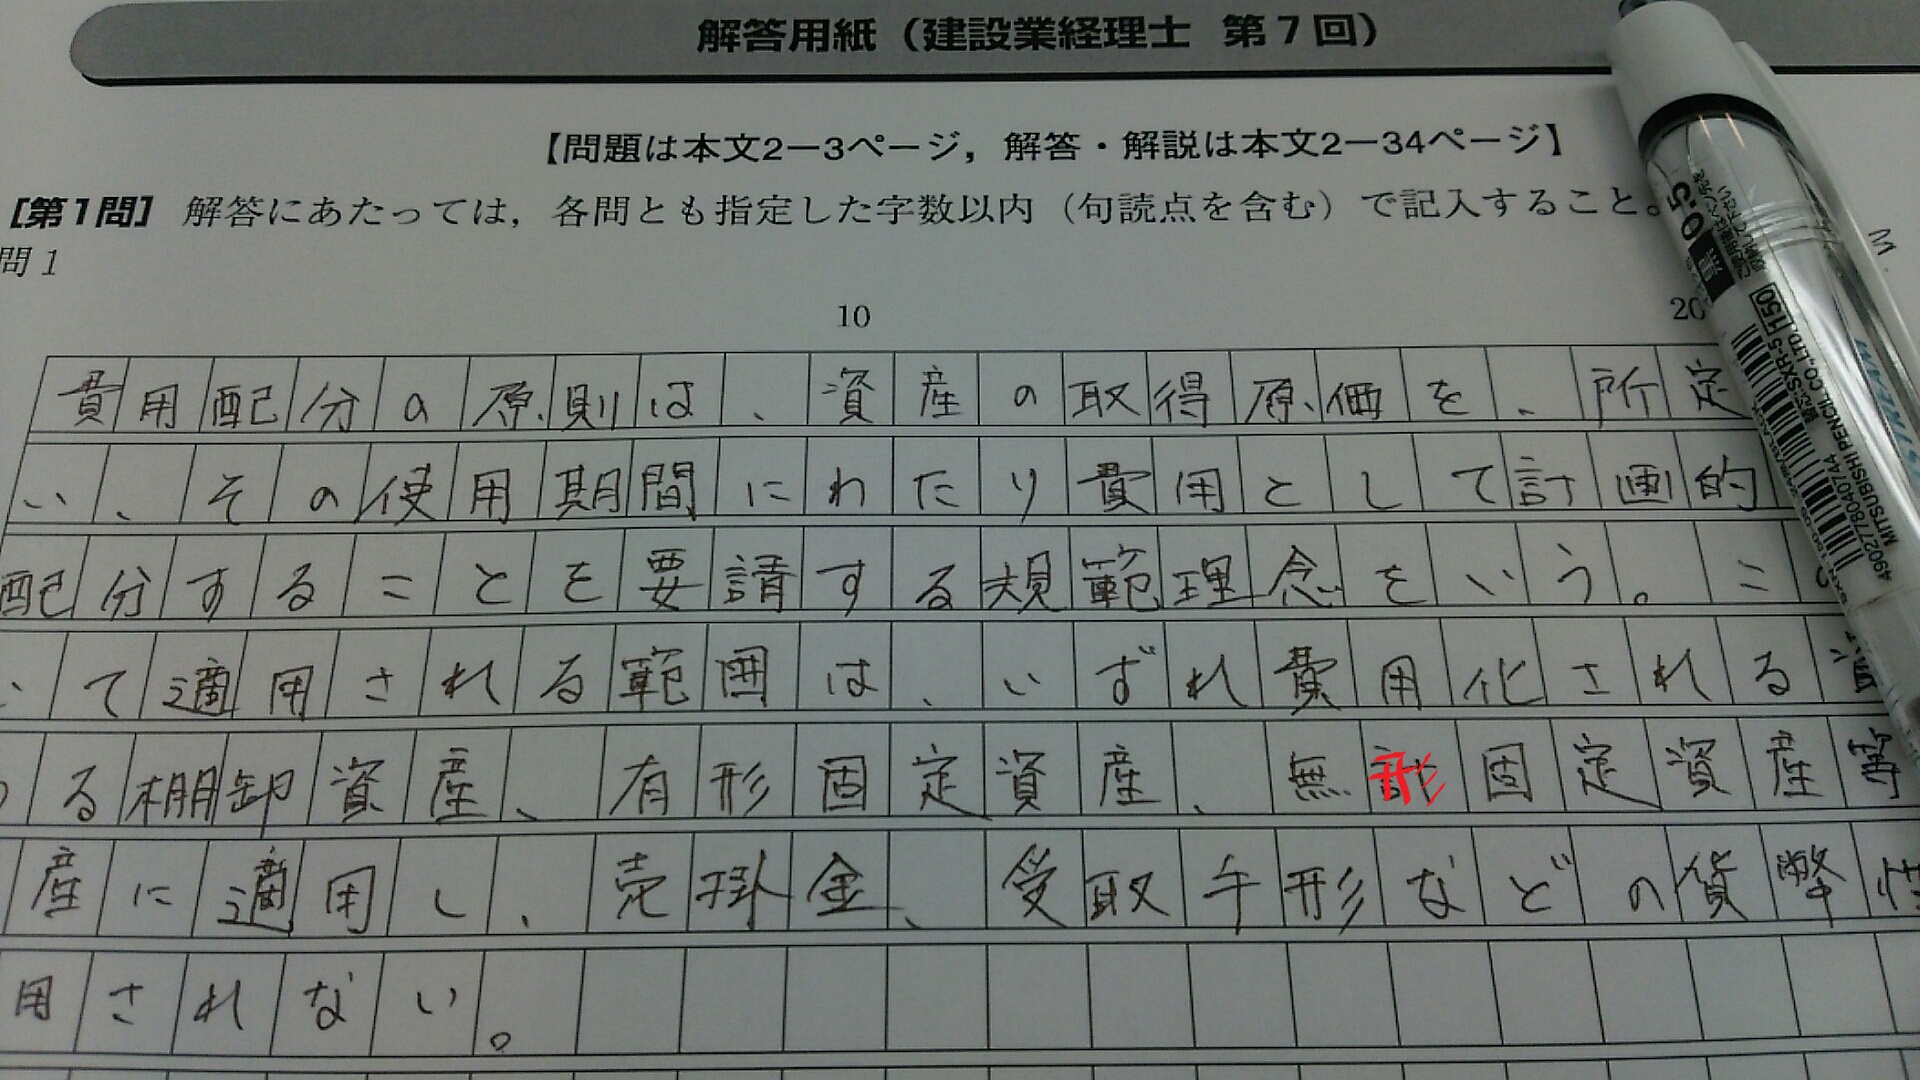 解答用紙（建設業経理士 第7回）
【問題は本文2－3ページ，解答・解説は本文2－34ページ】
［第1問］ 解答にあたっては，各問とも指定した字数以内（句読点を含む）で記入すること。
問1
10
20
費用配分の原則は、資産の取得原価を、所定
い、その使用期間にわたり費用として計画的
配分することを要請する規範理念をいう。こ
いて適用される範囲は、いずれ費用化される資
る棚卸資産、有形固定資産、無形固定資産等
産に適用し、売掛金、受取手形などの貨幣性
用されない。
0.5
黒
150
SXR-5
MITSUBISHI PENCIL CO., LTD.
4902778040744